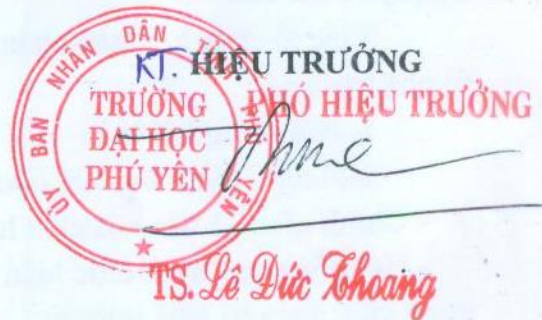 KT. HIỆU TRƯỞNG
PHÓ HIỆU TRƯỞNG
ỦY BAN NHÂN DÂN TỈNH PHÚ YÊN
TRƯỜNG
ĐẠI HỌC
PHÚ YÊN
TS. Lê Đức Thoang